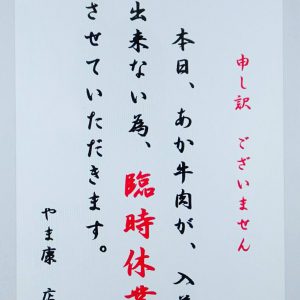 申し訳 ございません
本日、あか牛肉が、入
出来ない為、臨時休業
させていただきます。
やま康 店